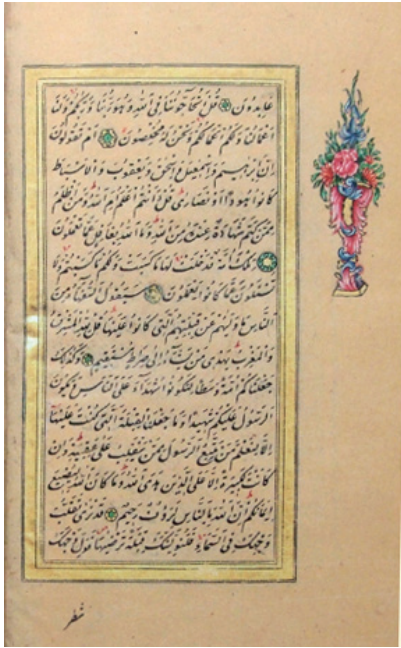 عَابِدُونَ قُلْ اَتُحَاجُّونَنَا فِى اللّٰهِ وَهُوَ رَبُّنَا وَرَبُّكُمْ وَلَنَا
اَعْمَالُنَا وَلَكُمْ اَعْمَالُكُمْ وَنَحْنُ لَهُ مُخْلِصُونَ اَمْ تَقُولُونَ
اِنَّ اِبْرٰهِيمَ وَاِسْمٰعِيلَ وَاِسْحٰقَ وَيَعْقُوبَ وَالْاَسْبَاطَ
كَانُوا هُودًا اَوْ نَصَارٰى قُلْ ءَاَنْتُمْ اَعْلَمُ اَمِ اللّٰهُ وَمَنْ اَظْلَمُ
مِمَّنْ كَتَمَ شَهَادَةً عِنْدَهُ مِنَ اللّٰهِ وَمَا اللّٰهُ بِغَافِلٍ عَمَّا تَعْمَلُونَ
تِلْكَ اُمَّةٌ قَدْ خَلَتْ لَهَا مَا كَسَبَتْ وَلَكُمْ مَا كَسَبْتُمْ وَلَا
تُسْئَلُونَ عَمَّا كَانُوا يَعْمَلُونَ سَيَقُولُ السُّفَهَاءُ مِنَ
النَّاسِ مَا وَلّٰيهُمْ عَنْ قِبْلَتِهِمُ الَّتِى كَانُوا عَلَيْهَا قُلْ لِلّٰهِ الْمَشْرِقُ
وَالْمَغْرِبُ يَهْدِى مَنْ يَشَاءُ اِلٰى صِرَاطٍ مُسْتَقِيمٍ وَكَذٰلِكَ
جَعَلْنَاكُمْ اُمَّةً وَسَطًا لِتَكُونُوا شُهَدَاءَ عَلَى النَّاسِ وَيَكُونَ
الرَّسُولُ عَلَيْكُمْ شَهِيدًا وَمَا جَعَلْنَا الْقِبْلَةَ الَّتِى كُنْتَ عَلَيْهَا
اِلَّا لِنَعْلَمَ مَنْ يَتَّبِعُ الرَّسُولَ مِمَّنْ يَنْقَلِبُ عَلٰى عَقِبَيْهِ وَاِنْ
كَانَتْ لَكَبِيرَةً اِلَّا عَلَى الَّذِينَ هَدَى اللّٰهُ وَمَا كَانَ اللّٰهُ لِيُضِيعَ
اِيمَانَكُمْ اِنَّ اللّٰهَ بِالنَّاسِ لَرَؤُفٌ رَحِيمٌ قَدْ نَرٰى تَقَلُّبَ
وَجْهِكَ فِى السَّمَاءِ فَلَنُوَلِّيَنَّكَ قِبْلَةً تَرْضٰيهَا فَوَلِّ وَجْهَكَ
شطر